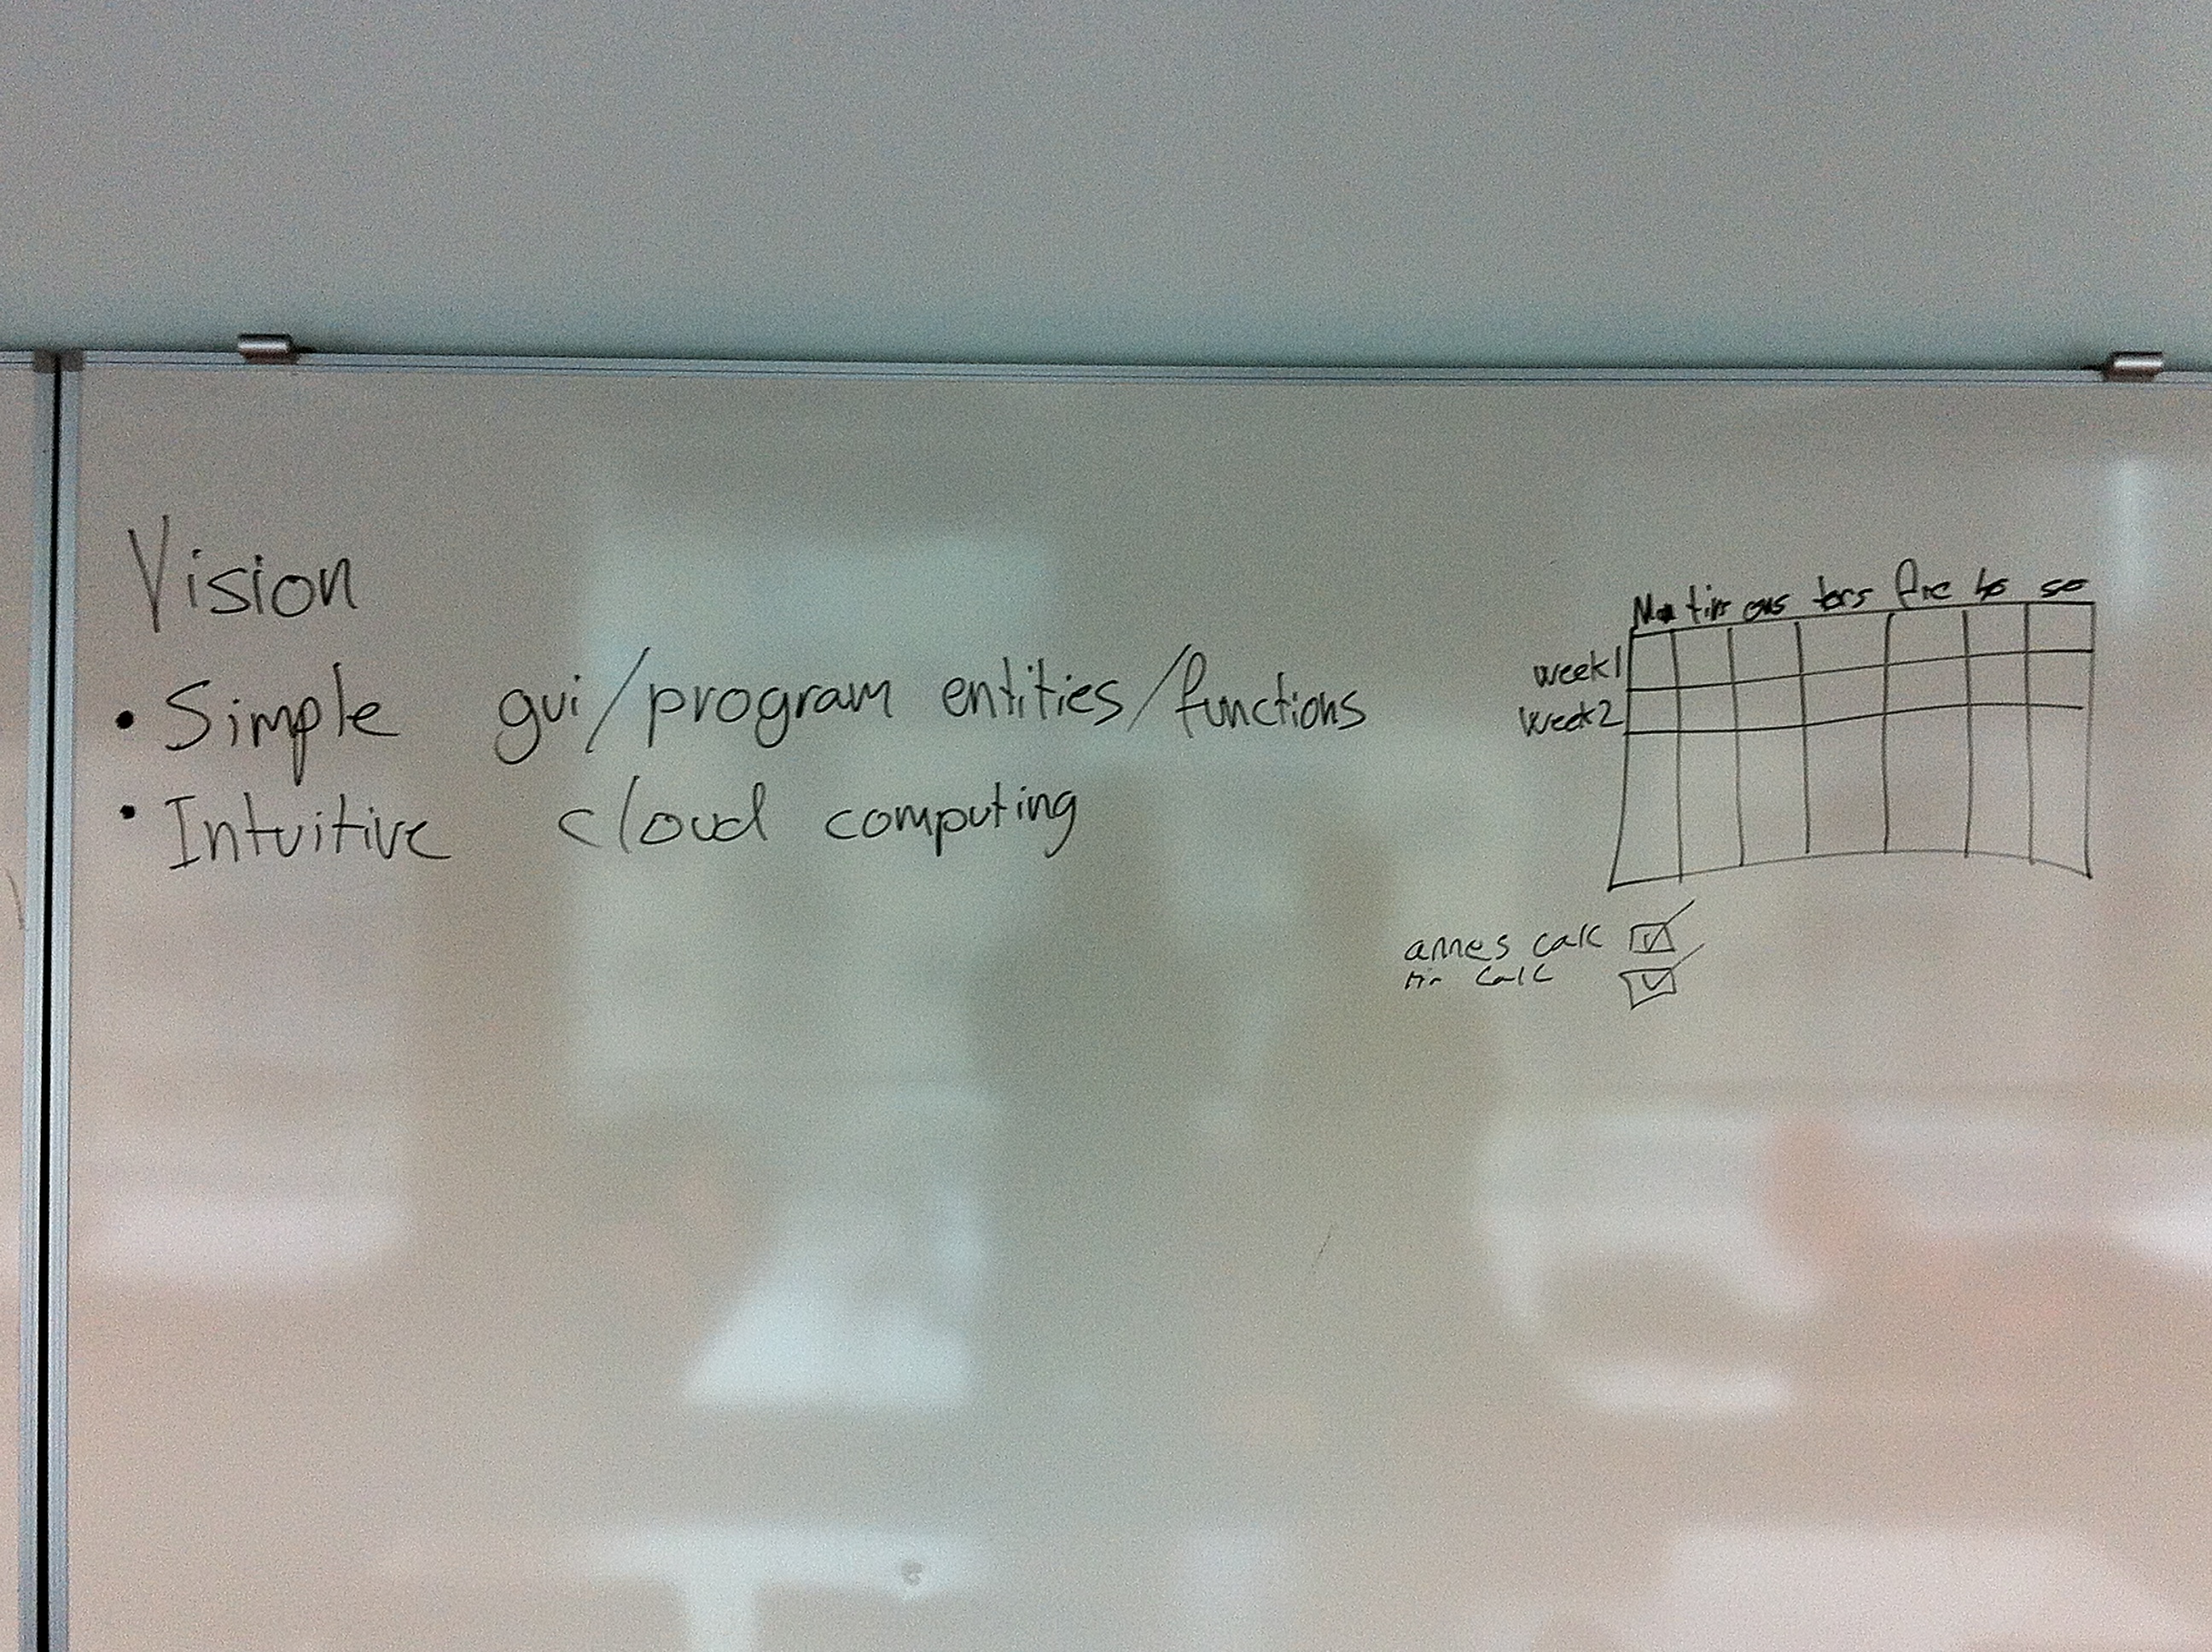 Vision
• Simple gui/program entities/functions
• Intuitive cloud computing
tirs ons tors fre lø sø
week1
week2
annes calc
calc